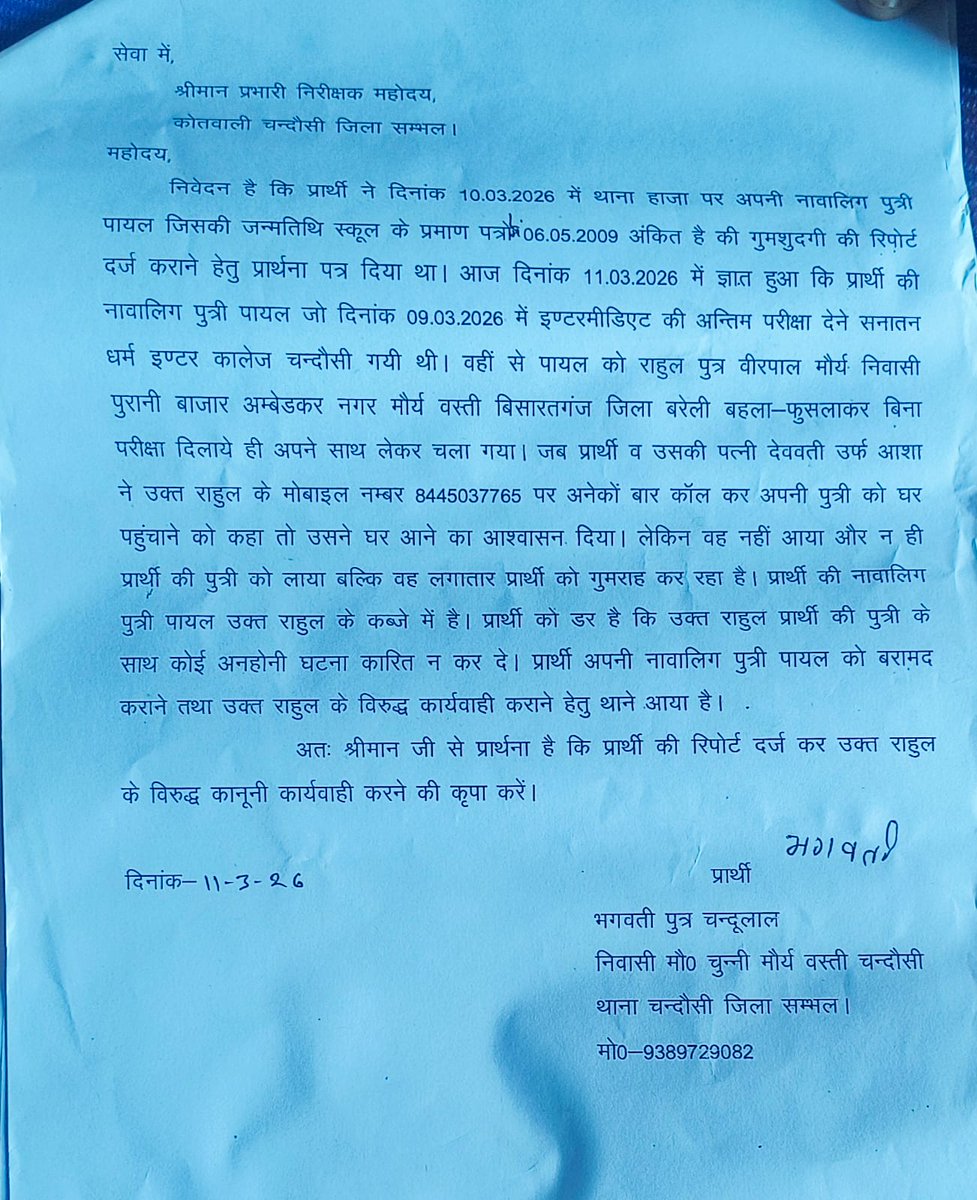 सेवा में,
श्रीमान प्रभारी निरीक्षक महोदय,
कोतवाली चन्दौसी जिला सम्भल।
महोदय,
निवेदन है कि प्रार्थी ने दिनांक 10.03.2026 में थाना हाजा पर अपनी नावालिग पुत्री
पायल जिसकी जन्मतिथि स्कूल के प्रमाण पत्रों 06.05.2009 अंकित है की गुमशुदगी की रिपोर्ट
दर्ज कराने हेतु प्रार्थना पत्र दिया था। आज दिनांक 11.03.2026 में ज्ञात हुआ कि प्रार्थी की
नावालिग पुत्री पायल जो दिनांक 09.03.2026 में इण्टरमीडिएट की अन्तिम परीक्षा देने सनातन
धर्म इण्टर कालेज चन्दौसी गयी थी। वहीं से पायल को राहुल पुत्र वीरपाल मौर्य निवासी
पुरानी बाजार अम्बेडकर नगर मौर्य वस्ती बिसारतगंज जिला बरेली बहला–फुसलाकर बिना
परीक्षा दिलाये ही अपने साथ लेकर चला गया। जब प्रार्थी व उसकी पत्नी देववती उर्फ आशा
ने उक्त राहुल के मोबाइल नम्बर 8445037765 पर अनेकों बार कॉल कर अपनी पुत्री को घर
पहुंचाने को कहा तो उसने घर आने का आश्वासन दिया। लेकिन वह नहीं आया और न ही
प्रार्थी की पुत्री को लाया बल्कि वह लगातार प्रार्थी को गुमराह कर रहा है। प्रार्थी की नावालिग
पुत्री पायल उक्त राहुल के कब्जे में है। प्रार्थी को डर है कि उक्त राहुल प्रार्थी की पुत्री के
साथ कोई अनहोनी घटना कारित न कर दे। प्रार्थी अपनी नावालिग पुत्री पायल को बरामद
कराने तथा उक्त राहुल के विरुद्ध कार्यवाही कराने हेतु थाने आया है।
अतः श्रीमान जी से प्रार्थना है कि प्रार्थी की रिपोर्ट दर्ज कर उक्त राहुल
के विरुद्ध कानूनी कार्यवाही करने की कृपा करें।
भगवती
दिनांक– 11-3-26 प्रार्थी
भगवती पुत्र चन्दूलाल
निवासी मौ0 चुन्नी मौर्य वस्ती चन्दौसी
थाना चन्दौसी जिला सम्भल।
मो0–9389729082